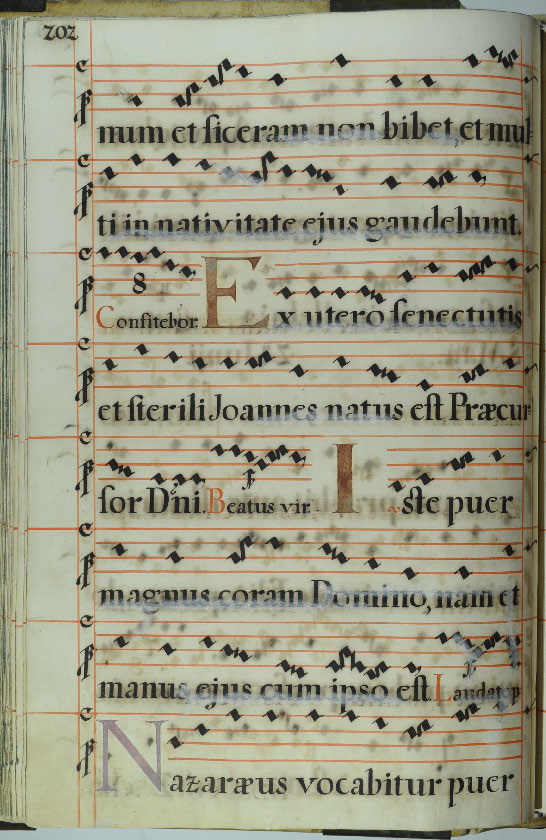 202
num et ſiceram non bibet, et mul-
ti in nativitate ejus gaudebunt.
8
Confitebor Ex utero ſenectutis
et ſterili Joannes natus eſt Præcur-
ſor Dñi. Beatus vir. Iſte puer
magnus coram Domino, nam et
manus ejus cum ipso eſt. Laudate p
Nazaræus vocabitur puer